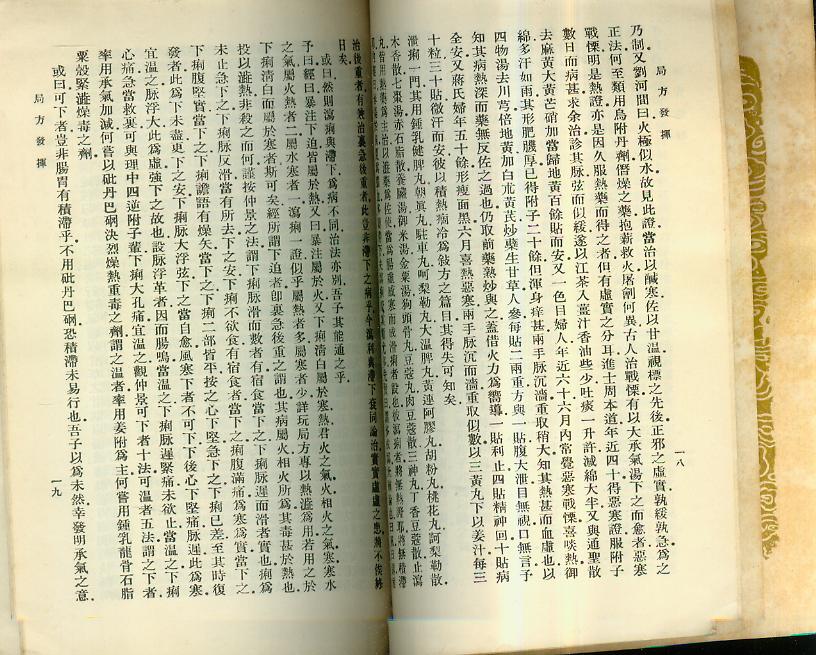 局方發揮
一八
乃制又劉河間曰火極似水故見此證當治以鹹寒佐以甘溫視標之先後正邪之虛實孰緩孰急爲之
正法何至類用烏附丹劑僭燥之藥抱薪救火屠劊何異古人治戰慄有以大承氣湯下之而愈者惡寒
戰慄明是熱證亦是因久服熱藥而得之者但有虛實之分耳進士周本道年近四十得惡寒證服附子
數日而病甚求余治診其脉弦而似緩遂以江茶入薑汁香油些少吐痰一升許減綿大半又與通聖散
去麻黃大黃芒硝加當歸地黃百餘貼而安又一色目婦人年近六十六月內常覺惡寒戰慄喜啖熱御
綿多汗如雨其形肥膚厚已得附子二十餘但渾身痒甚兩手脉沉濇重取稍大知其熱甚而血虛也以
四物湯去川芎倍地黃加白朮黃芪炒蘗生甘草人參每貼二兩重方與一貼腹大泄目無視口無言予
知其病熱深而藥無反佐之過也仍取前藥熟炒與之蓋借火力爲嚮導一貼利止四貼精神回十貼病
全安又蔣氏婦年五十餘形瘦面黑六月喜熱惡寒兩手脉沉而濇重取似數以三黃丸下以薑汁每三
十粒三十貼微汗而安彼以積熱痼冷爲敍方之篇目其得失可知矣
泄痢一門其用鍾乳健脾丸朝眞丸駐車丸訶梨勒丸大溫脾丸黃連阿膠丸胡粉丸桃花丸訶梨勒散
木香散七棗湯赤石脂散養臟湯御米湯金粟湯狗頭骨丸豆蔻丸肉豆蔻散三神丸丁香豆蔻散止瀉
治後重者有
日矣
或曰然則瀉痢與滯下爲病不同治法亦別吾子其能通之乎
予曰經曰暴注下迫皆屬於熱又曰暴注屬於火又下痢清白屬於寒熱君火之氣火相火之氣寒寒水
之氣屬火熱者二屬水寒者一瀉痢一證似乎屬熱者多屬寒者少詳玩局方專以熱澁爲用若用之於
下痢清白而屬於寒者斯可矣經所謂下迫者卽裏急後重之謂也其病屬火相火所爲其毒甚於熱也
投以澁熱非殺之而何謹按仲景之法謂下痢脉滑而數者有宿食當下之下痢脉遲而滑者實也痢爲
未止急下之下痢脉反滑當有所去下之安下痢不欲食有宿食者當下之下痢腹滿痛爲寒爲實當下之
下痢腹堅實當下之下痢譫語有燥矢當下之下痢三部皆平按之心下堅急下之下痢已差至其時復
發者此爲下未盡更下之安下痢脉大浮弦下之當自愈風寒下者不可下下後心下堅痛脉遲此爲寒
宜溫之脉浮大此爲虛強下之故也設脉浮革者因而腸鳴當溫之下痢脉遲緊痛未欲止當溫之下痢
心痛急當救裏可與理中四逆附子輩下痢大孔痛宜溫之觀仲景可下者十法可溫者五法謂之下者
率用承氣加減何嘗以砒丹巴硇決烈燥熱重毒之劑謂之溫者率用姜附爲主何嘗用鍾乳龍骨石脂
粟殼緊澁燥毒之劑
或曰可下者豈非腸胃有積滯乎不用砒丹巴硇恐積滯未易行也吾子以爲未然幸發明承氣之意
局方發揮
一九